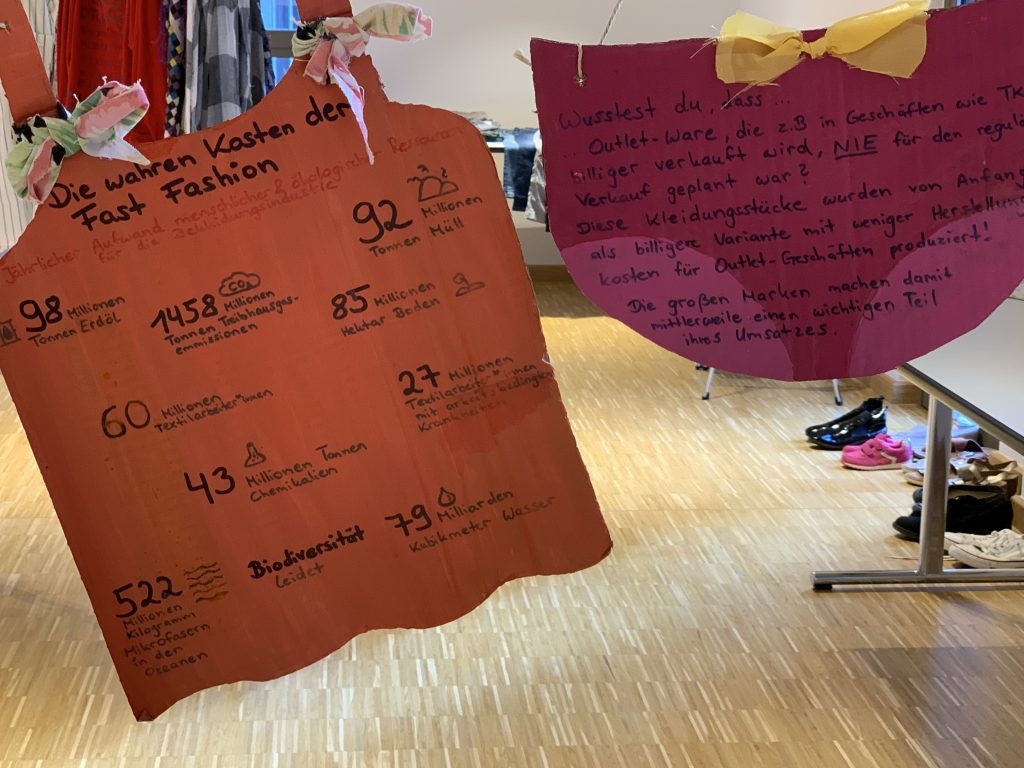 Die wahren Kosten der
Fast Fashion
Jährlicher Aufwand menschlicher & ökologischer Ressourcen
für die Bekleidungsindustrie
92
Millionen
Tonnen Müll
98 Millionen
Tonnen Erdöl
CO2
1458 Millionen
Tonnen Treibhausgas-
emmissionen
85 Millionen
Hektar Boden
60 Millionen
Textilarbeiter*innen
27 Millionen
Textilarbeiter*innen
mit arbeitsbedingten
Krankheiten
43 Millionen Tonnen
Chemikalien
79 Milliarden
Kubikmeter Wasser
Biodiversität
leidet
522
Millionen
Kilogramm
Mikrofasern
in den
Ozeanen
Wusstest du, dass ...
... Outlet-Ware, die z.B in Geschäften wie TK
billiger verkauft wird, NIE für den regulä
Verkauf geplant war?
Diese Kleidungsstücke wurden von Anfang
als billigere Variante mit weniger Herstellung
kosten für Outlet-Geschäften produziert!
Die großen Marken machen damit
mittlerweile einen wichtigen Teil
ihres Umsatzes.